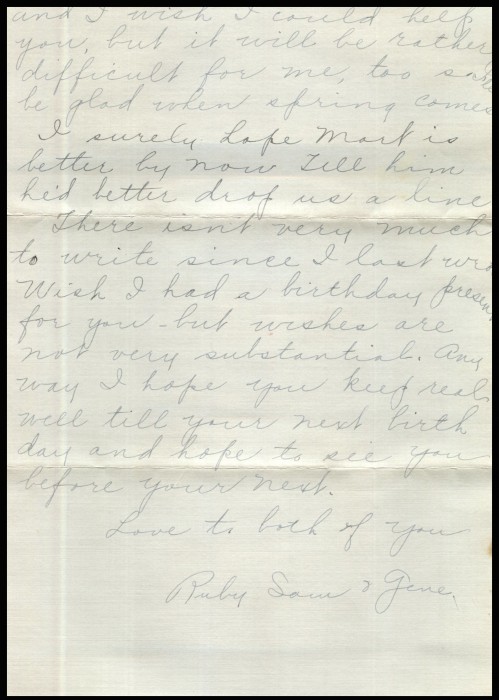 and I wish I could help
you, but it will be rather
difficult for me, too so
be glad when spring comes
I surely hope Mart is
better by now Tell him
he'd better drop us a line
There isnt very much
to write since I last wro
Wish I had a birthday present
for you - but wishes are
not very substantial. Any
way I hope you keep real
well till your next birth
day and hope to see you
before your next.
Love to both of you
Ruby Sam & Gene.